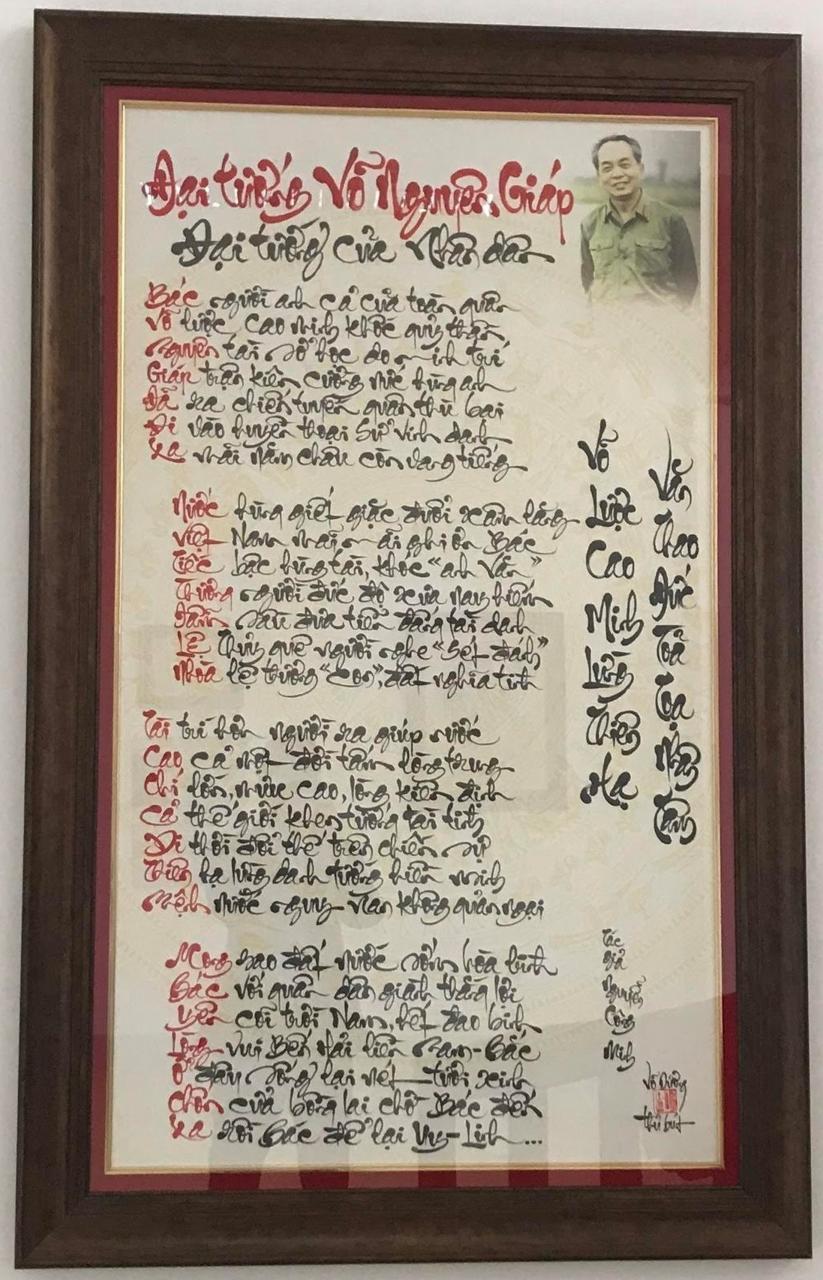 Đại tướng Võ Nguyên Giáp
Đại tướng của Nhân dân
Bác người anh cả của toàn quân
Võ lược cao minh khóc quỷ thần
Nguyên tài sở học do minh trí
Giáp trận kiên cường nức hùng anh
Đã ra chiến tuyến quân thù bại
Đi vào huyền thoại Sử vinh danh
Xa mãi năm châu còn vang tiếng
Nước hùng giết giặc đuổi xâm lăng
Việt Nam mãi mãi ghi ơn Bác
Tiếc bậc hùng tài, khóc "anh Văn"
Thương người đức độ xưa nay hiếm
Dẫm sầu đưa tiễn đấng tài danh
Lệ Thủy quê người nghe "Sét đánh"
Nhòa lệ thương "Con", đất nghĩa tình
Tài trí hơn người ra giúp nước
Cao cả một đời tấm lòng trung
Chí lớn, mưu cao, lòng kiên định
Cả thế giới khen tướng tài tình
Di thời đổi thế trên chiến sự
Thiên hạ lừng danh tướng hiền minh
Mệnh nước nguy nan không quản ngại
Mong sao đất nước sớm hòa bình
Bác với quân dân giành thắng lợi
Yên cõi trời Nam, hết đao binh
Lòng vui Bến Hải liền Nam-Bắc
Ở đâu sống lại nét tươi xinh
Chốn cửa bồng lai chờ Bác đến
Xa rồi Bác để lại Uy-Linh...
Võ Lược Cao Minh Lừng Thiên Hạ
Văn Thao Đức Tỏa Tọa Nhân Tâm
Tác giả Nguyễn Công Minh
Võ Dương
thủ bút